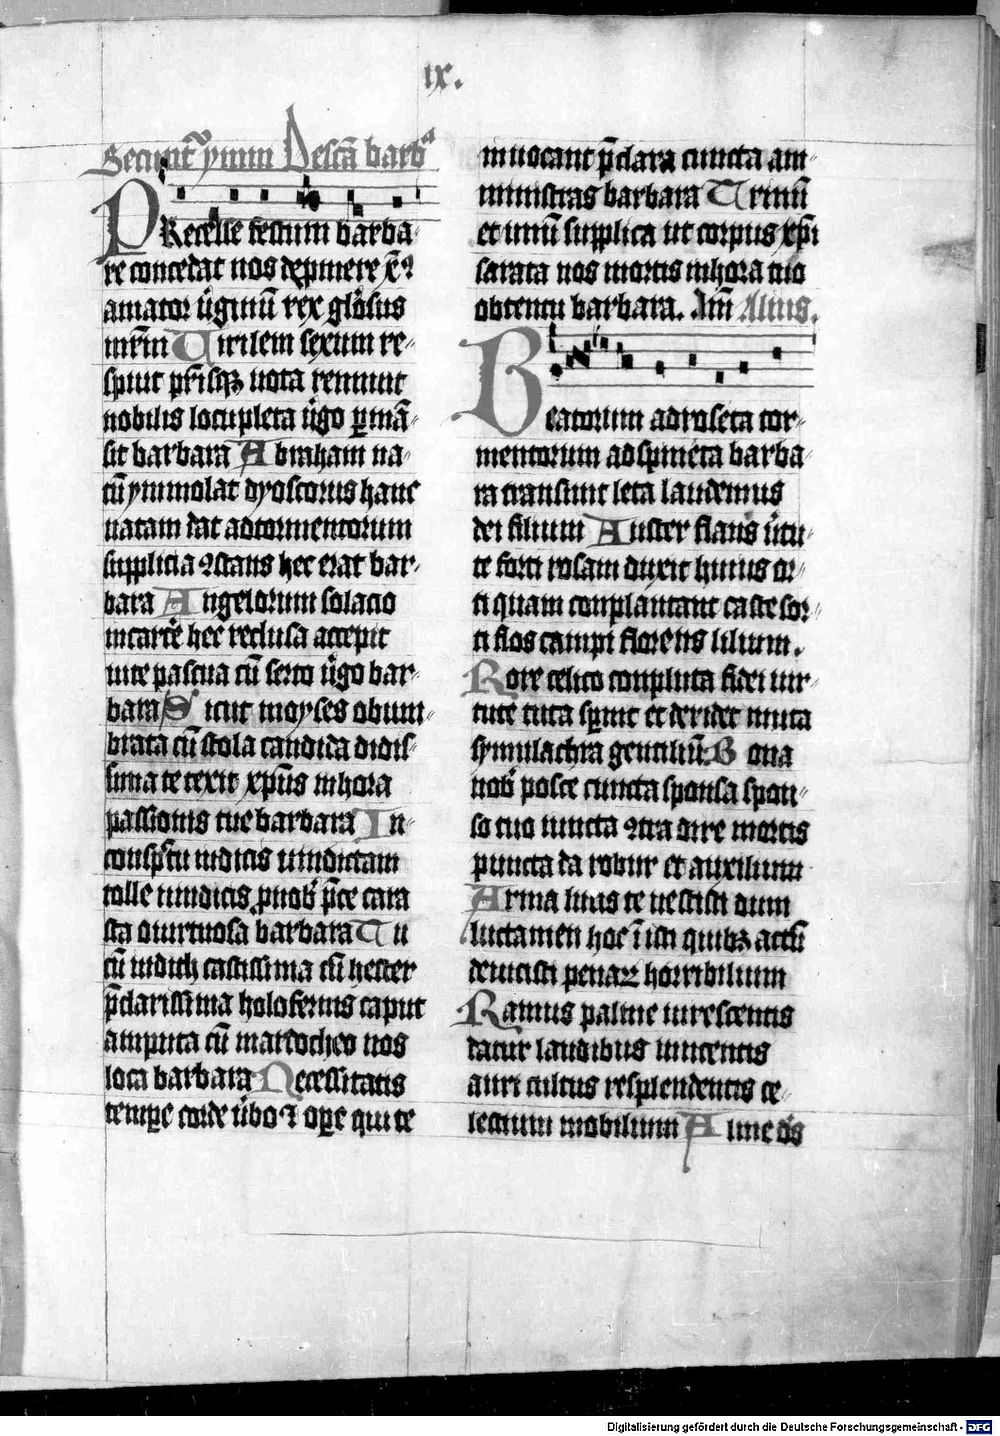 ix.
Secunt᷑ ymni De scā barbᵃ
PRecelse festum barba-
re concedat nos dep̄mere ex̄
amator v̓ginū rex gl̓osus
inr̄m Virilem sexum re-
spuit pr̓isq vota rennuit
nobilis locupleta v̓go ꝑmā-
sit barbara Abraham na-
tū ymmolat dyoscorus hanc
natam dat ad tormentorum
supplicia ꝯstans hec erat bar-
bara Angelorum solacio
in carcē hec reclusa accepit
vite pascua cū serto v̓go bar-
bara Sicut moyses obum-
brata cū stola candida didis-
sima te texit xp̄us in hora
passionis tue barbara In
conspc̄tu iudicis vindictam
tolle vindicis ꝓ nob̓ p̄ce cara
sta o virtuosa barbara Tu
cū iudich castissima cū hester
p̄clarissima holofernis caput
amputa cū mardocheo nos
loca barbara Necessitatis
tempe corde v̓bo ⁊ oꝑe qui te
invocant p̄clara cuncta am-
ministras barbara Trinū
et unū supplica ut corpus xp̄i
sacrata nos mortis in hora tuo
obtentu barbara. Am̄ Alius.
Beatorum ad roseta tor-
mentorum ad spineta barba-
ra transiuit leta laudemus
dei filium Auster flans v̓tu-
te forti rosam duxit huius or-
ti quam conplantant caste sor-
ti flos campi florens lilium.
Rore celico conpluta fidei vir-
tute tuta sp̄nit et deridet muta
symulachra gentiliū Bona
nob̓ posce cuncta sponsa spon-
so tuo iuncta ꝯtra dire mortis
puncta da robur et auxilium
Arma lucis te vestisti dum
luctamen hoc īisti quibꝫ actū
devicisti penaꝝ horribilium
Ramus palme virescentis
datur laudibus vincentis
auri cultus resplendentis ce-
lestium mobilium Alme d̓s
Digitalisierung gefördert durch die Deutsche Forschungsgemeinschaft - DFG